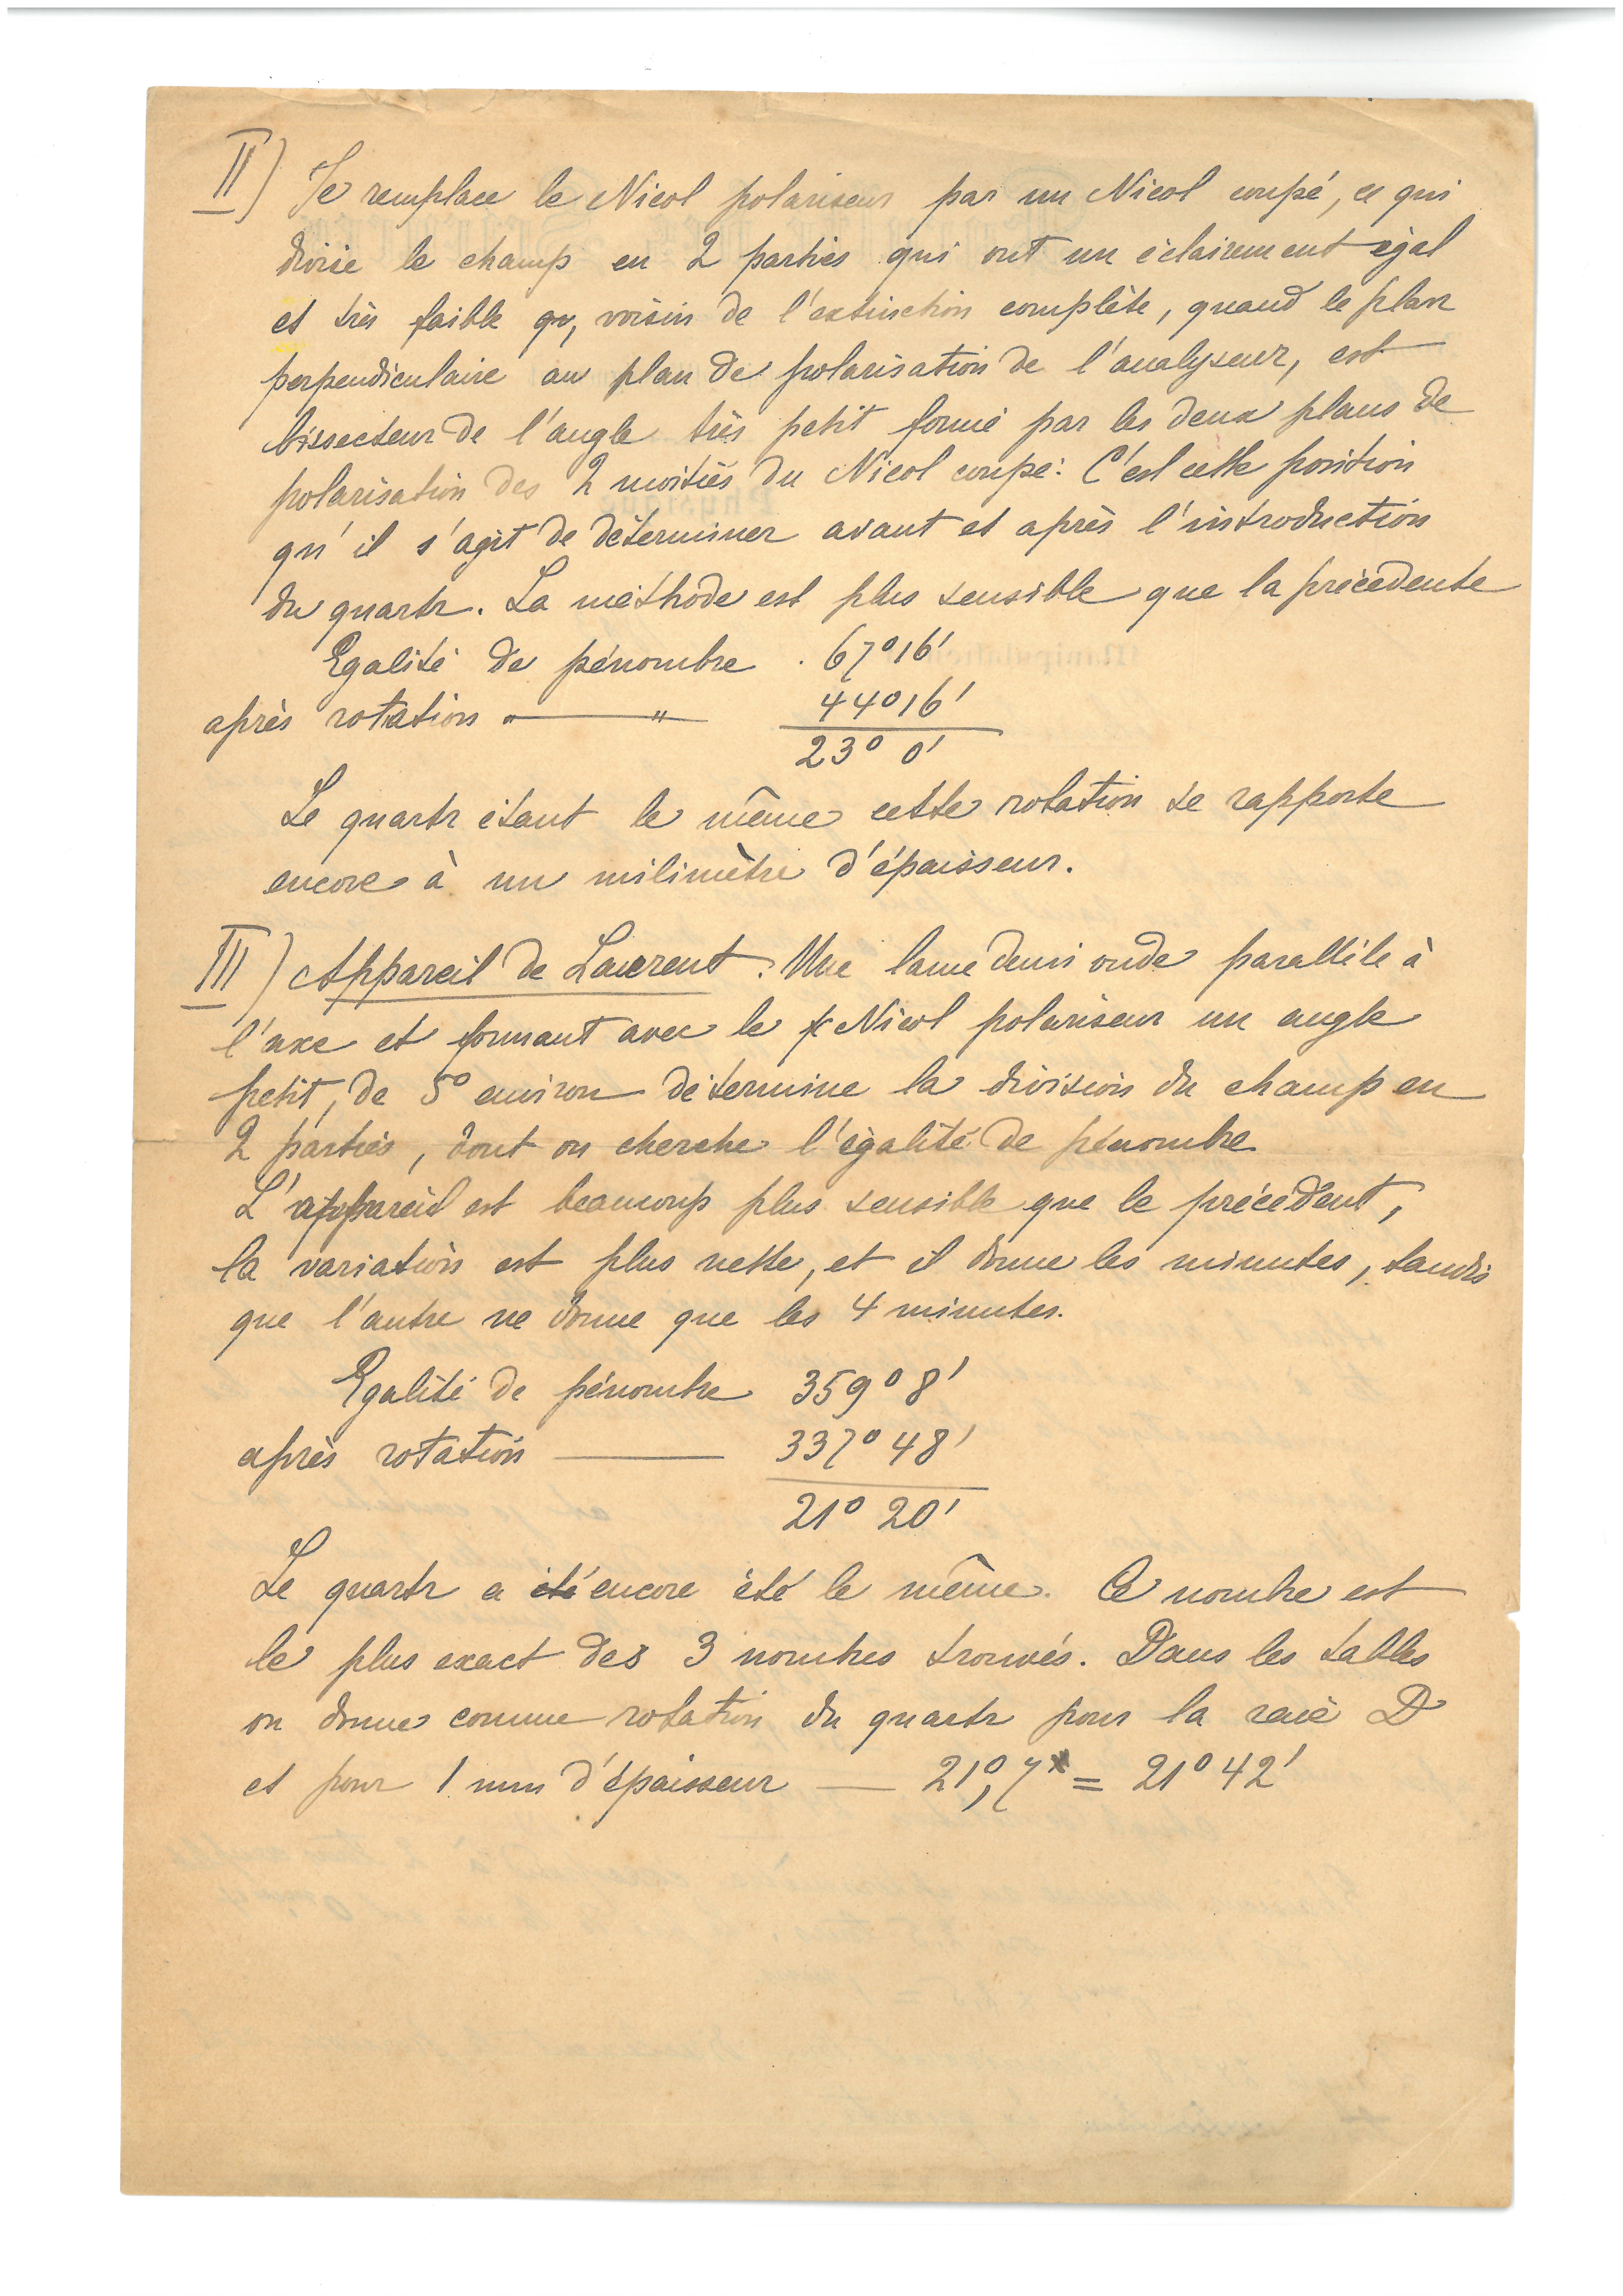 II) Je remplace le Nicol polariseur par un Nicol coupé, ce qui
divise le champ en 2 parties qui ont un éclairement égal
et très faible qu, voisin de l'extinction complète, quand le plan
perpendiculaire au plan de polarisation de l'analyseur, est
bissecteur de l'angle très petit formé par les deux plans de
polarisation des 2 moitiés du Nicol coupé. C'est cette position
qu'il s'agit de déterminer avant et après l'introduction
du quartz. La méthode est plus sensible que la précédente
Egalité de pénombre . 67°16'
après rotation — " — 44°16'
23° 0'
Le quartz étant le même cette rotation se rapporte
encore à un milimètre d'épaisseur.
III) Appareil de Laurent. Une lame demi onde parallèle à
l'axe et formant avec le Nicol polariseur un angle
petit, de 5° environ détermine la division du champ en
2 parties, dont on cherche l'égalité de pénombre
L'appareil est beaucoup plus sensible que le précédent,
la variation est plus nette, et il donne les minutes, tandis
que l'autre ne donne que les 4 minutes.
Egalité de pénombre 359° 8'
après rotation — 337° 48'
21° 20'
Le quartz a été encore été le même. Ce nombre est
le plus exact des 3 nombres trouvés. Dans les tables
on donne comme rotation du quartz pour la raie D
et pour 1 mm d'épaisseur — 21°,7 = 21° 42'